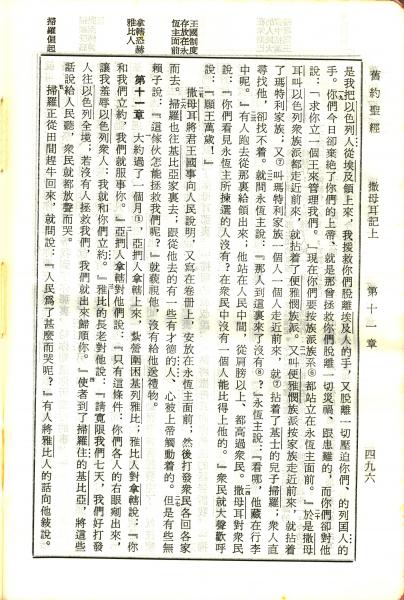 舊約聖經　撒母耳記上　第十一章　四九六
是我把以色列人從埃及領上來，我援救你們脫離埃及人的手，又脫離一切壓迫你們、的列國人的
手。你們今日卻棄絕了你們的上帝、就是那曾拯救你們脫離一切災禍、跟患難的，而你們卻對他
說：『求你立一個王來管理我們。』現在你們要按族派系⑥都站立在永恆主面前。』於是撒母
耳叫以色列衆族派都走近前來，就拈着了便雅憫族派。又叫便雅憫族派按家族走近前來，就拈着
了瑪特利家族；又⑦叫瑪特利家族一個人一個人走近前來，就⑦拈着了基士的兒子掃羅；衆人直
尋找他，卻找不着。就問永恆主說：『那人到這裏來了沒有⑧？』永恆主說：『看哪，他藏在行李
中呢。』有人跑去從那裏給領出來；他站在人民中間，從肩膀以上、都高過衆民。撒母耳對衆民
說：『你們看見永恆主所揀選的人沒有？在衆民中沒有一個人能比得上他的。』衆民就大聲歡呼
說：『願王萬歲！』
王國制度
存放在永
恆主面前
撒母耳將君王國事向人民說明，又寫在卷冊上，安放在永恆主面前；然後打發衆民各回各家
而去。掃羅也往基比亞家裏去；跟從他去的有一些有才德的人、心被上帝觸動着的。但是有些無
賴子說：『這傢伙怎能拯救我們呢？』就藐視他，沒有給他送禮物。
拿轄恐赫
雅比人
第十一章　大約過了一個月①，亞捫人拿轄上來，紮營圍困基列雅比；雅比人對拿轄說：『你
和我們立約，我們就服事你。』亞捫人拿轄對他們說：『只有這條件：你們各人的右眼剜出來，
讓我羞辱以色列衆人；我就和你們立約。』雅比的長老對他說：『請寬限我們七天，我們好打發
人往以色列全境；若沒有人拯救我們，我們就出來歸順你。』使者到了掃羅住的基比亞，將這些
話說給人民聽，衆民就都放聲而哭。
掃羅倔起
掃羅正從田間趕牛回來，就問說：『人民爲了甚麼而哭呢？』有人將雅比人的話向他敍說。